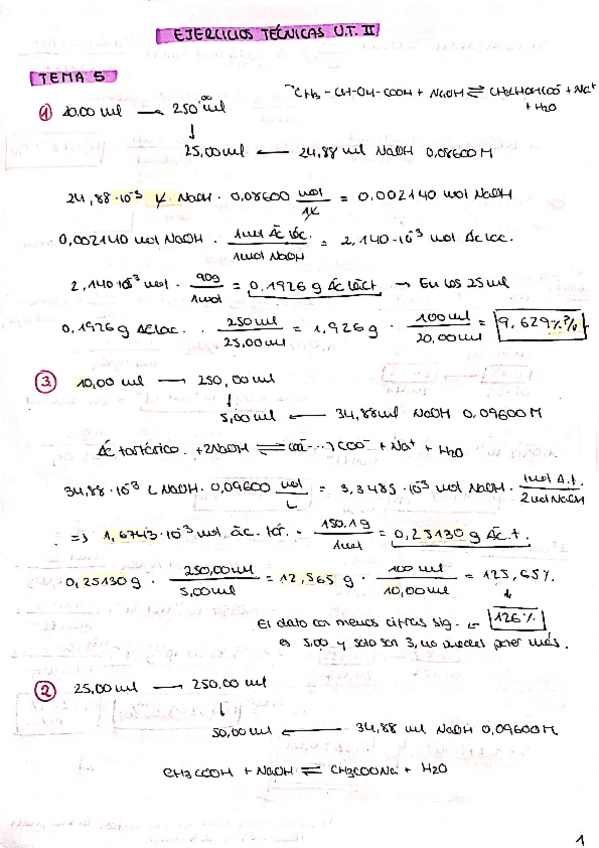 EJERCICIOS TÉCNICAS U.T. II
TEMA 5
CH3 - CH-OH - COOH + NaOH ⇌ CH3CHOHCOO⁻ + Na⁺
+ H2O
① 20.00 ml → 250'00 ml
↓
25,00 ml ← 24,88 ml NaOH 0,08600 M
24,88·10⁻³ L NaOH · 0,08600 mol/1L = 0.002140 mol NaOH
0,002140 mol NaOH · 1 mol Ác lác./1 mol NaOH = 2,140·10⁻³ mol Ác lac.
2,140·10⁻³ mol · 90g/1mol = 0,1926 g Ác láct → En los 25 ml
0,1926 g Ác lac. · 250 ml/25,00 ml = 1,926 g · 100 ml/20,00 ml = 9,629% P/V
③ 10,00 ml → 250,00 ml
↓
5,00 ml ← 34,88 ml NaOH 0,09600 M
Ác tartárico. + 2NaOH ⇌ COO⁻...COO⁻ + Na⁺ + H2O
34,88·10⁻³ L NaOH · 0,09600 mol/L = 3,3485·10⁻³ mol NaOH · 1 mol A.t./2 mol NaOH
=> 1,6743·10⁻³ mol ác. tar. · 150.1g/1mol = 0,25130 g Ác.t.
0,25130 g · 250,00 ml/5,00 ml = 12,565 g · 100 ml/10,00 ml = 125,65%
↓
El dato con menos cifras sig. ← 126%
es 5,00 y solo son 3, no puedes poner más.
② 25,00 ml → 250,00 ml
↓
50,00 ml ← 34,88 ml NaOH 0,09600 M
CH3COOH + NaOH ⇌ CH3COONa + H2O
1